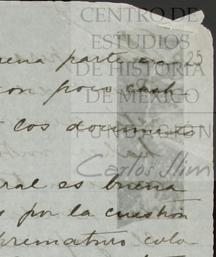 CENTRO DE
ESTUDIOS
DE HISTORIA
DE MÉXICO
CARSO
Carlos Slim
25
parte
con poco
cos documento
ral es buena
s por la cuestión
prematuro